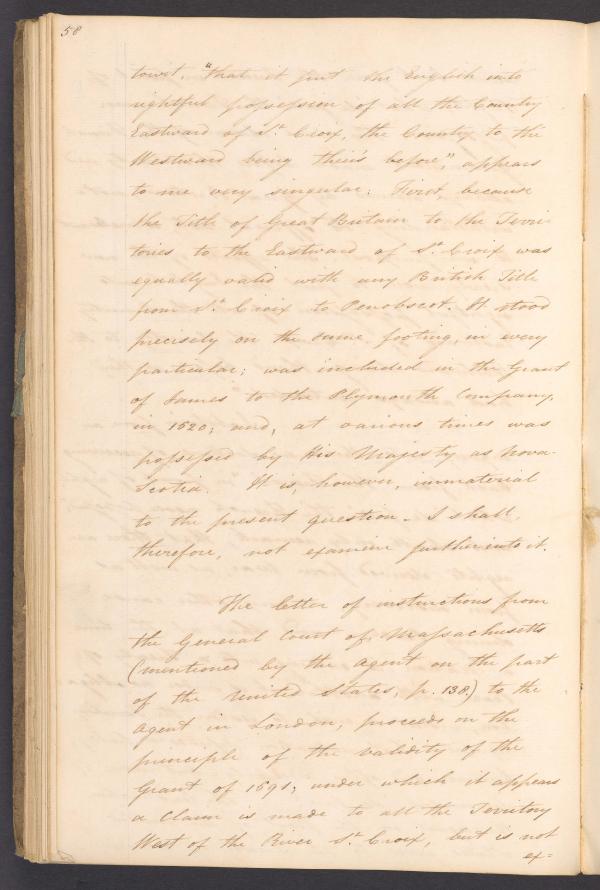 58
towit, "that it put the English into
rightful possession of all the Country
Eastward of St Croix, the Country to the
Westward being their's before", appears
to me very singular: First, because
the Title of Great Britain to the Terri-
tories to the Eastward of St Croix was
equally valid with any British Title
from St Croix to Penobscot. It stood
precisely on the same footing, in every
particular; was included in the Grant
of James to the Plymouth Company,
in 1620; and, at various times was
possessed by His Majesty as Nova-
Scotia. It is, however, immaterial
to the present question. I shall,
therefore, not examine further into it.
The letter of instructions from
the General Court of Massachusetts
(mentioned by the Agent on the part
of the United States, p. 138.) to the
Agent in London, proceeds on the
principle of the validity of the
Grant of 1691, under which it appears
a Claim is made to all the Territory
West of the River St Croix, but is not
ex=